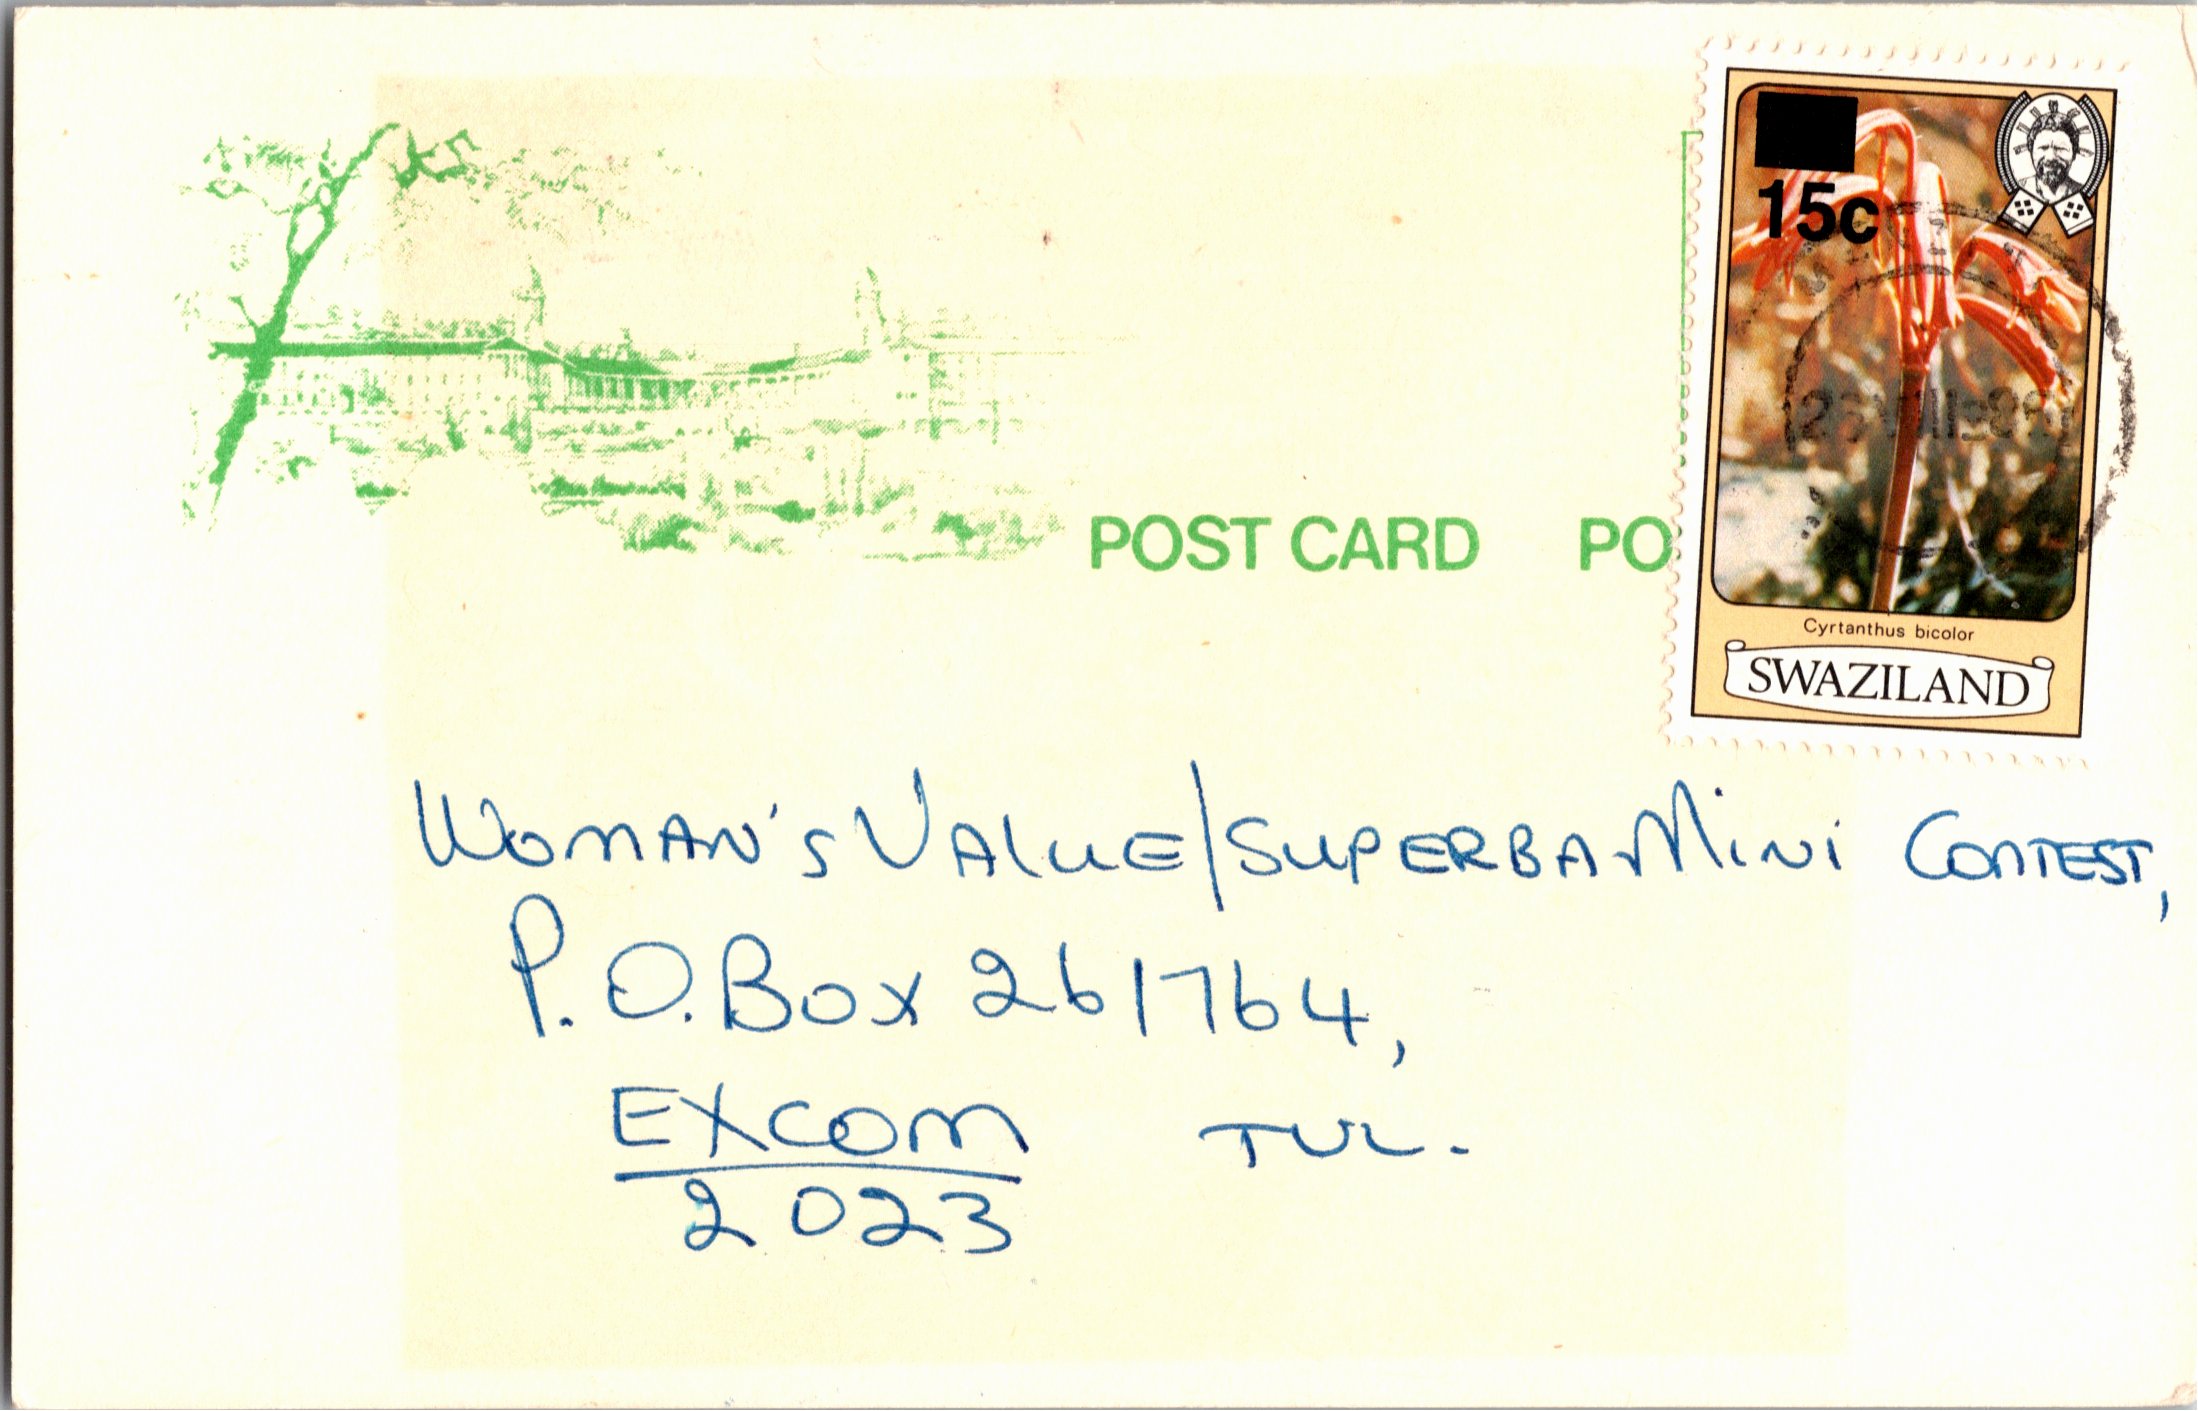 15c
POST CARD PO
Cyrtanthus bicolor
SWAZILAND
WOMAN'S VALUE/SUPERBA MINI CONTEST,
P.O. BOX 261764,
EXCOM TVL.
2023